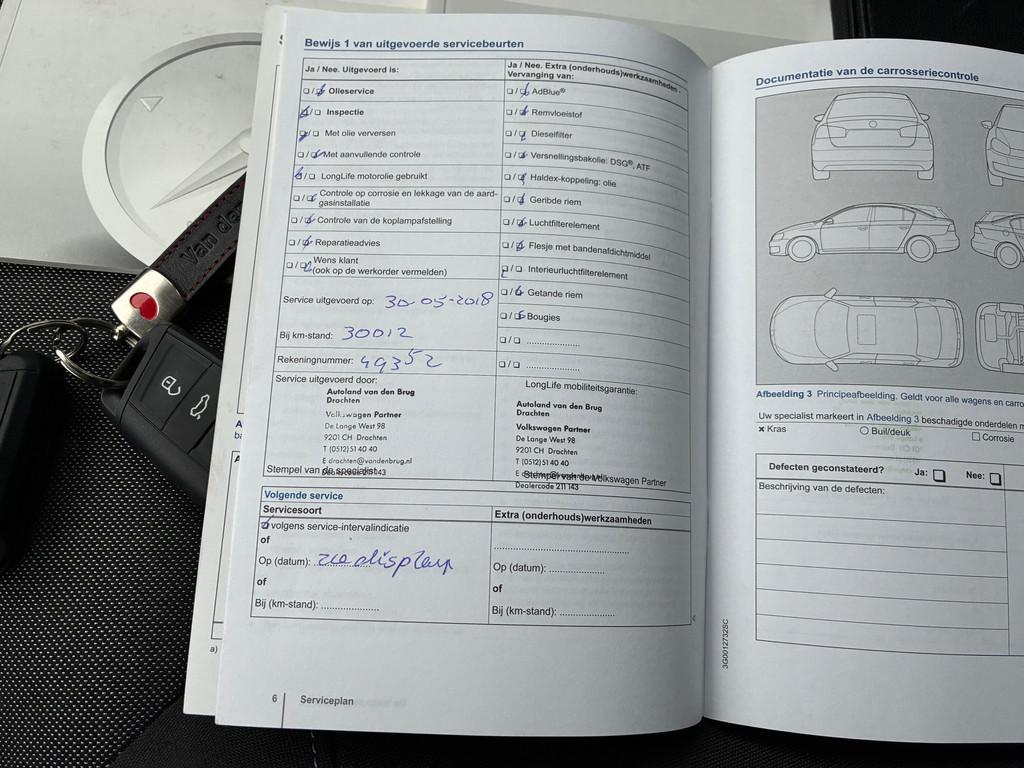 Bewijs 1 van uitgevoerde servicebeurten
Ja / Nee. Uitgevoerd is:
❏ / ❏ Olieservice
❏ / ❏ Inspectie
❏ / ❏ Met olie verversen
❏ / ❏ Met aanvullende controle
❏ / ❏ LongLife motorolie gebruikt
❏ / ❏ Controle op corrosie en lekkage van de aard-
gasinstallatie
❏ / ❏ Controle van de koplampafstelling
❏ / ❏ Reparatieadvies
❏ / ❏ Wens klant
(ook op de werkorder vermelden)
Service uitgevoerd op: 30-05-2018
Bij km-stand: 30012
Rekeningnummer: 49352
Service uitgevoerd door:
Autoland van den Brug
Drachten
Volkswagen Partner
De Lange West 98
9201 CH Drachten
T (0512) 51 40 40
E drachten@vandenbrug.nl
Dealercode 211 143
Stempel van de specialist
Ja / Nee. Extra (onderhouds)werkzaamheden -
Vervanging van:
❏ / ❏ AdBlue®
❏ / ❏ Remvloeistof
❏ / ❏ Dieselfilter
❏ / ❏ Versnellingsbakolie: DSG®, ATF
❏ / ❏ Haldex-koppeling: olie
❏ / ❏ Geribde riem
❏ / ❏ Luchtfilterelement
❏ / ❏ Flesje met bandenafdichtmiddel
❏ / ❏ Interieurluchtfilterelement
❏ / ❏ Getande riem
❏ / ❏ Bougies
❏ / ❏ .....................
❏ / ❏ .....................
LongLife mobiliteitsgarantie:
Autoland van den Brug
Drachten
Volkswagen Partner
De Lange West 98
9201 CH Drachten
T (0512) 51 40 40
Stempel van de Volkswagen Partner
Dealercode 211 143
Volgende service
Servicesoort
❏ volgens service-intervalindicatie
of
Op (datum): zie display
of
Bij (km-stand): ....................
Extra (onderhouds)werkzaamheden
Op (datum): ...................
of
Bij (km-stand): ...................
6 Serviceplan
Documentatie van de carrosseriecontrole
Afbeelding 3 Principeafbeelding. Geldt voor alle wagens en
Uw specialist markeert in Afbeelding 3 beschadigde onderdelen
× Kras
○ Buil/deuk
❏ Corrosie
Defecten geconstateerd? Ja: ❏ Nee: ❏
Beschrijving van de defecten:
3G0012732SC
Van den
a)